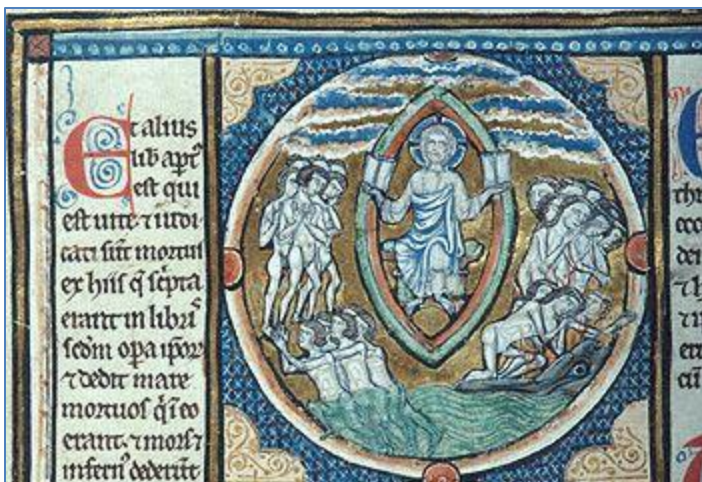 Et alius
lib apt̄
est qui
est uite ⁊ iudi
cati sūt mortui
ex hiis q̄ sc̄pta
erant in libris
sc̄dm opa ip̄oꝝ
⁊ dedit mare
mortuos q̄ ī eo
erant ⁊ mors ⁊
infern⁹ dederūt